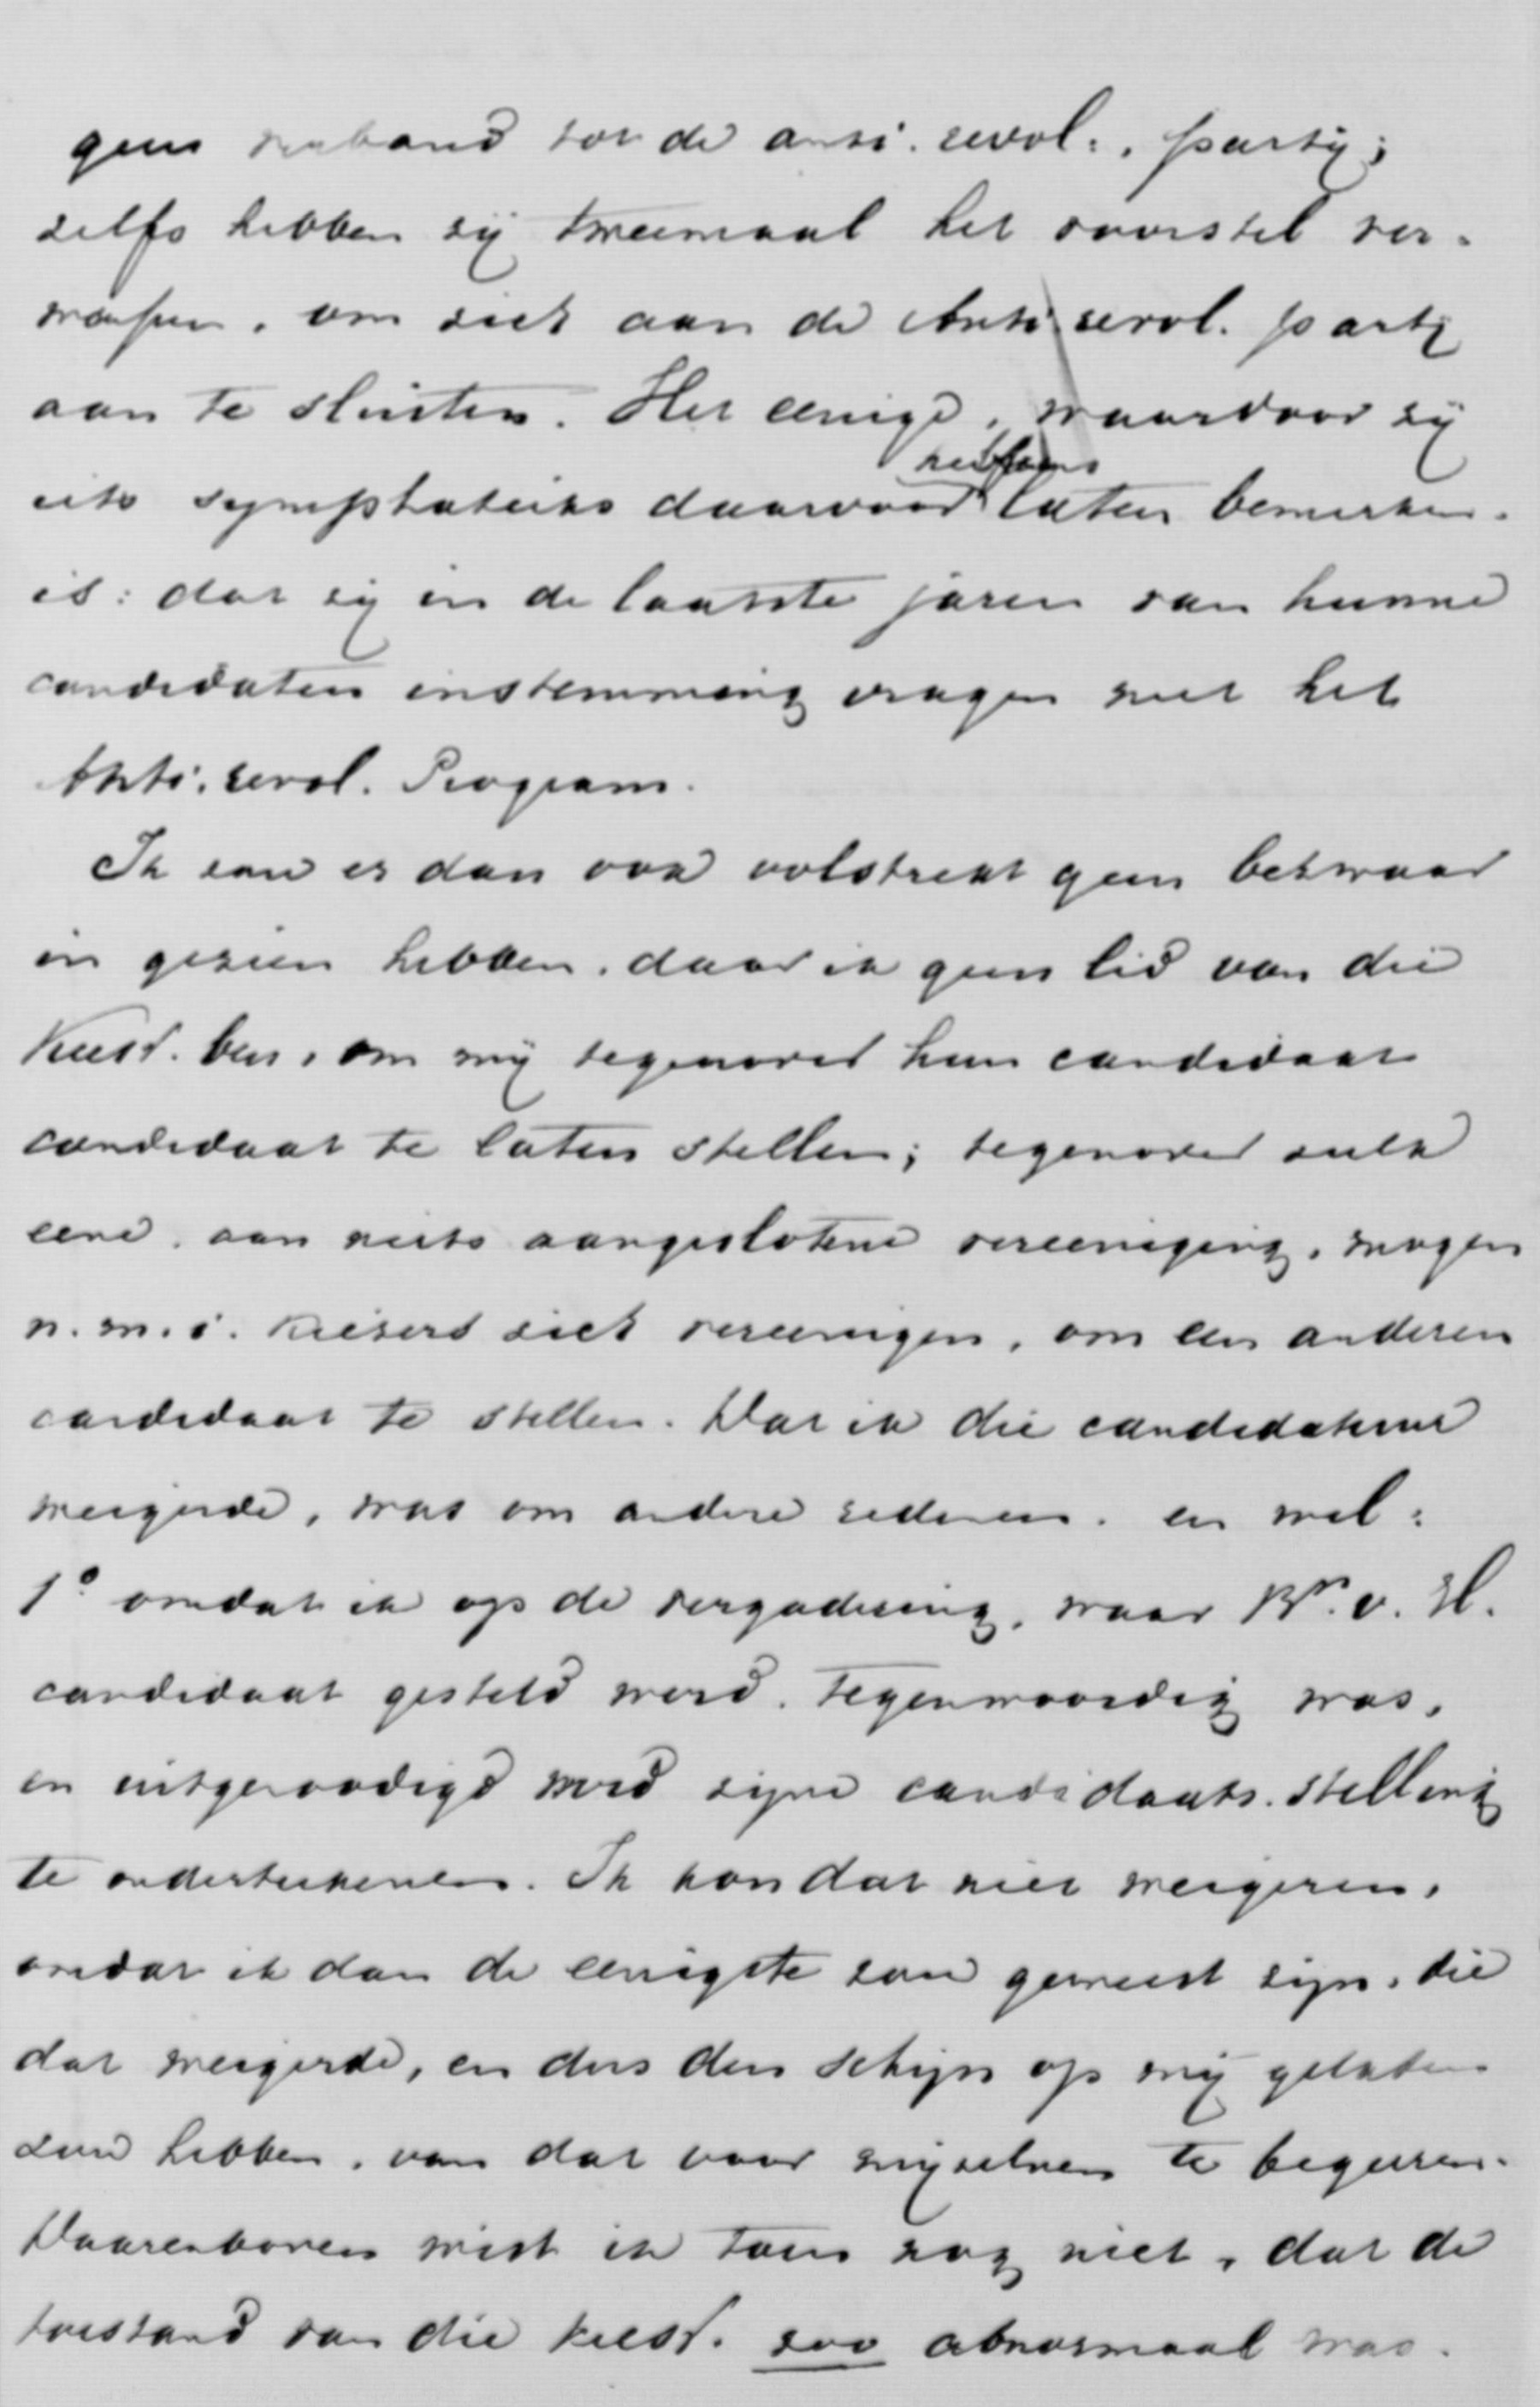 geen verband tot de anti. revol:. party;
zelfs hebben zij tweemaal het voorstel ver-
worpen, om zich aan de Anti revol. partij
aan te sluiten. Het eenige, waardoor zij
hebben
iets symphatieks daarvoor laten bemerken.
is: dat zij in de laatste jaren van hunne
candidaten instemming vragen met het
Anti. revol. Program.
Ik zou er dan ook volstrekt geen bezwaar
in gezien hebben, daar ik geen lid van die
Kiesv. ben, om mij tegenover hun candidaat
candidaat te laten stellen; tegenover zulk
eene, aan niets aangeslotene vereeniging, mogen
n. m. i. kiezers zich vereenigen, om een anderen
candidaat te stellen. Dat ik die candidatuur
weigerde, was om andere redenen. en wel:
1º omdat ik op de vergadering, waar Bn. v. H.
candidaat gesteld werd. tegenwoordig was,
en uitgenoodigd werd zijne candidaats. stelling
te onderteekenen. Ik kon dat niet weigeren,
omdat ik dan de eenigste zou geweest zijn, die
dat weigerde, en dus den schijn op mij geladen
zou hebben, van dat voor mijzelven te begeeren.
Daarenboven wist ik toen nog niet, dat de
toestand van die kiesv. zoo abnormaal was.